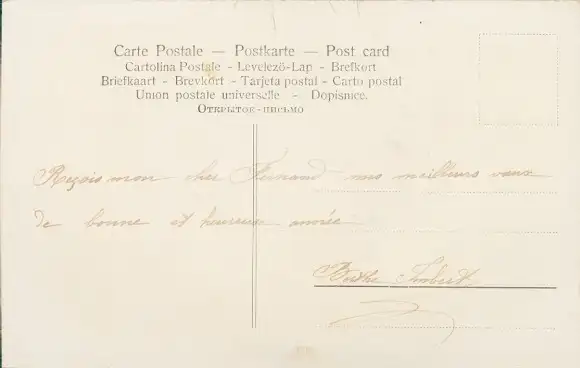 Carte Postale — Postkarte — Post card
Cartolina Postale - Levelező-Lap - Brefkort
Briefkaart - Brevkort - Tarjeta postal - Carto postal
Union postale universelle - Dopisnice.
Открытое-письмо
Reçois mon cher Fernand mes meilleurs vœux
de bonne et heureuse année
Berthe Imbert